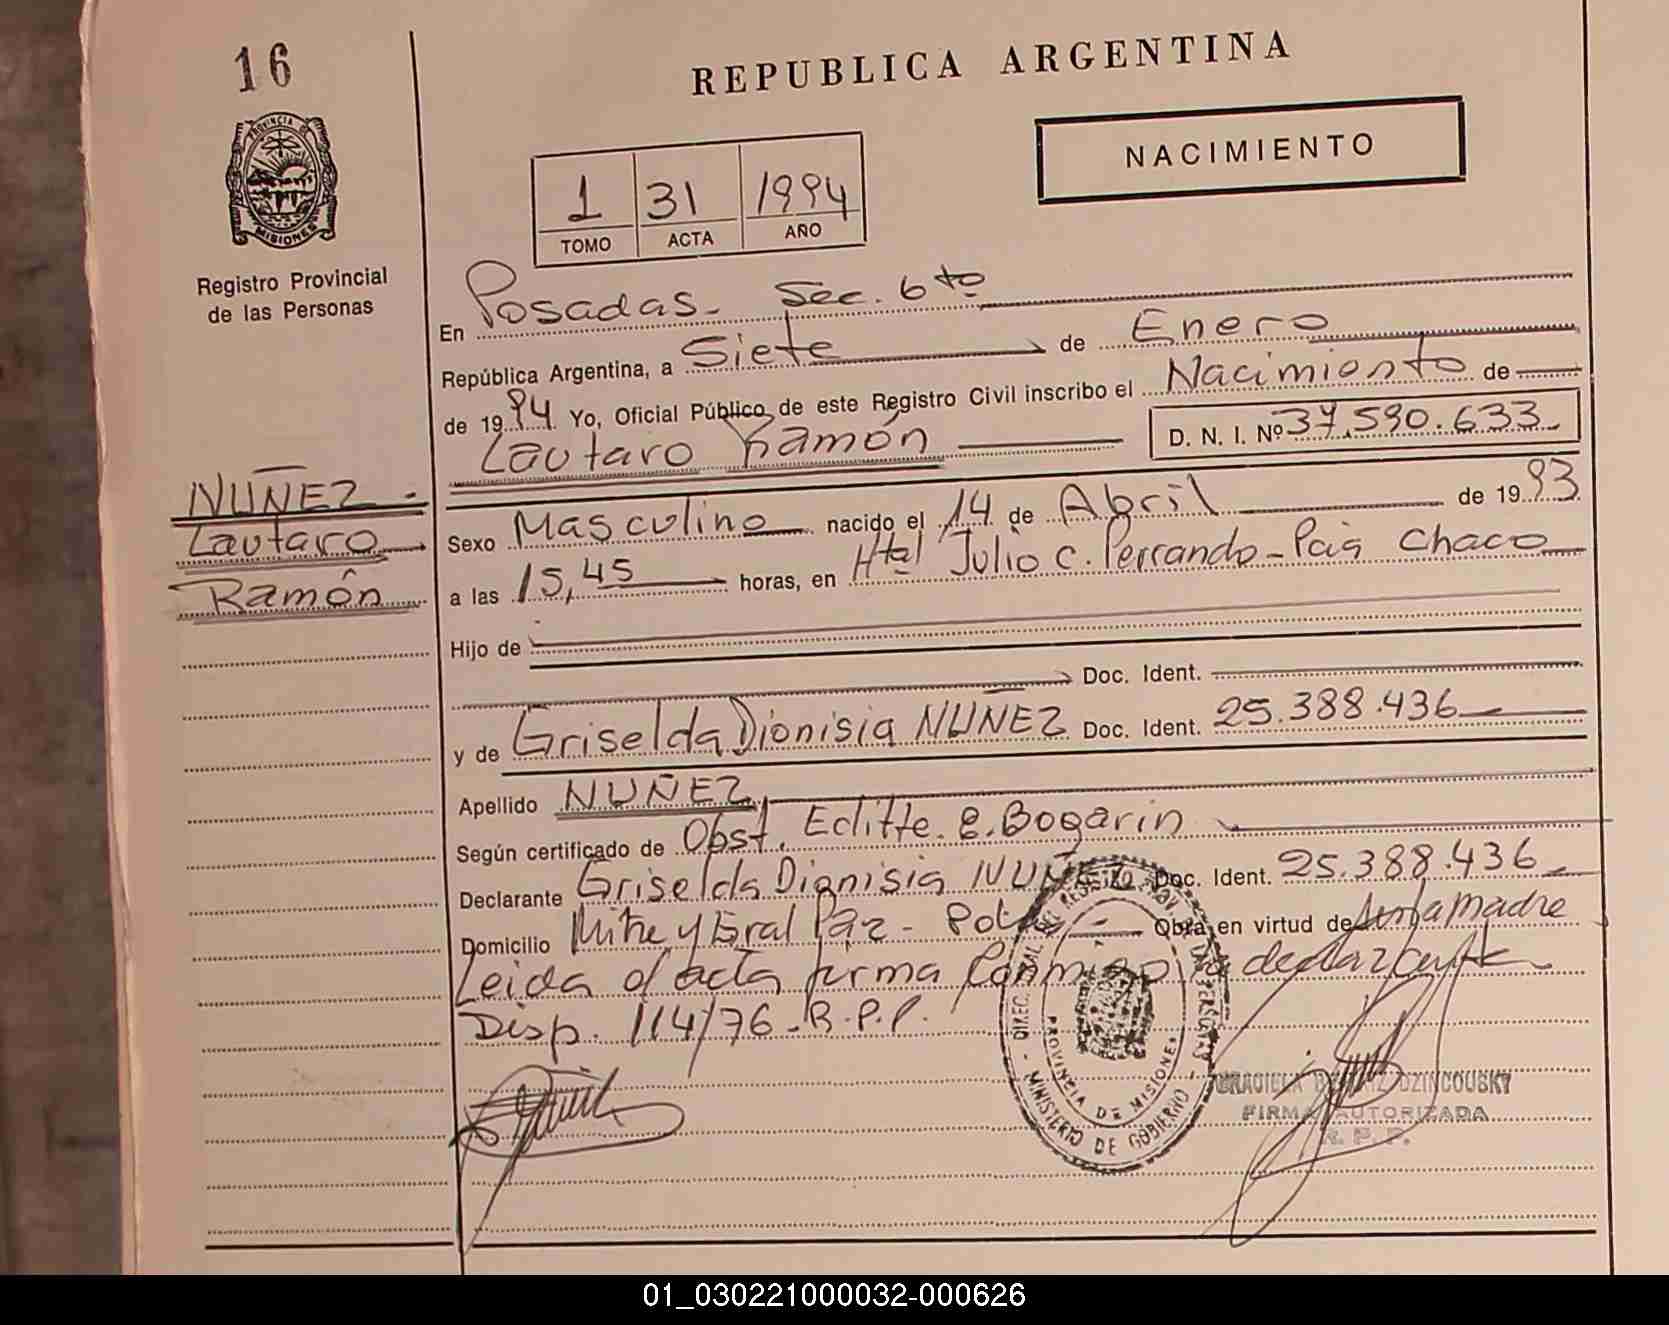 16
REPUBLICA ARGENTINA
NACIMIENTO
PROVINCIA DE
MISIONES
Registro Provincial
de las Personas
1 31 1994
TOMO ACTA AÑO
En Posadas - Sec. 6to
República Argentina, a Siete de Enero
de 1994 Yo, Oficial Público de este Registro Civil inscribo el Nacimiento de
Lautaro Ramón D. N. I. Nº 37.590.633
NUÑEZ
Lautaro
Ramón
Sexo Masculino nacido el 14 de Abril de 1993
a las 15,45 horas, en Htal Julio C. Perrando - Pcia Chaco
Hijo de
Doc. Ident.
y de Griselda Dionisia NUÑEZ Doc. Ident. 25.388.436
Apellido NUÑEZ
Según certificado de Obst. Editte. E. Bogarin
Declarante Griselda Dionisia NUÑEZ Doc. Ident. 25.388.436
Domicilio Mitre y Gral Paz - Obra en virtud de ser la madre
Leida el acta firma conmigo la declarante
Disp. 114/76 - R.P.P.
PROVINCIA DE MISIONES
MINISTERIO DE GOBIERNO
GRACIELA DZINCOUSKY
FIRMA AUTORIZADA
R. P. P.
01_030221000032-000626